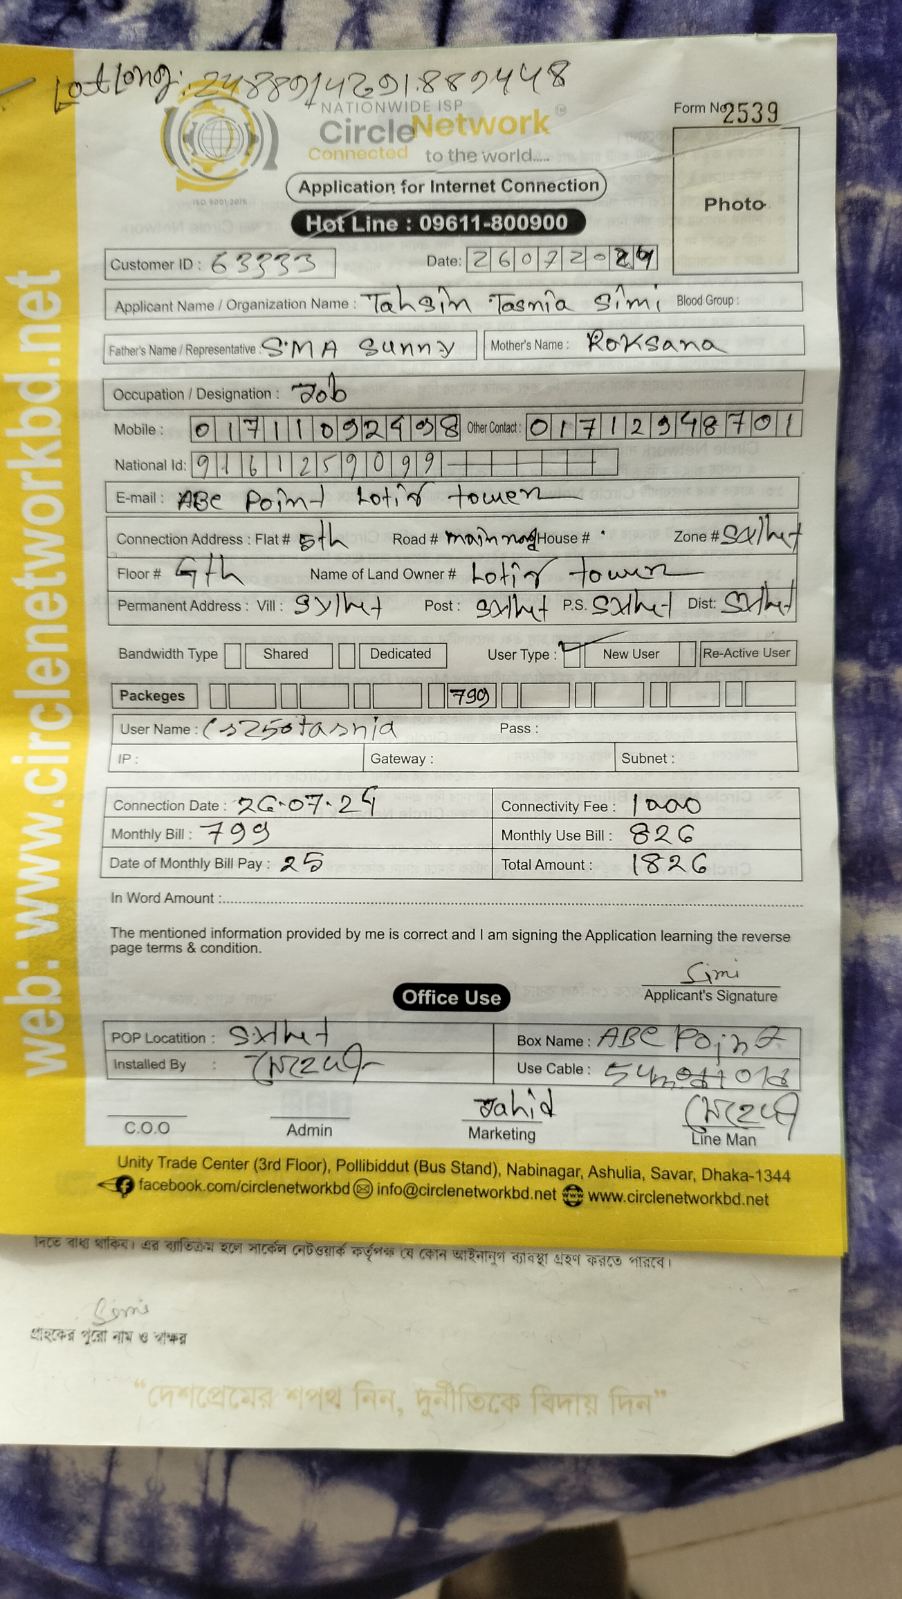 LatLong: 24.889142,91.889448
NATIONWIDE ISP
Circle Network
Connected to the world.....
ISO 9001:2015
Form No 2539
Photo
Application for Internet Connection
Hot Line : 09611-800900
Customer ID : 63333 Date: 26072024
Applicant Name / Organization Name : Tahsin Tasnia Simi Blood Group :
Father's Name / Representative : S.M A Sunny Mother's Name : Roksana
Occupation / Designation : Job
Mobile : 01711092498 Other Contact : 01712948701
National Id: 9161259099
E-mail : ABC Point Lotif tower
Connection Address : Flat # 5th Road # main road House # Zone # Sylhet
Floor # Name of Land Owner # Lotif tower
Permanent Address : Vill : Sylhet Post : Sylhet P.S. Sylhet Dist: Sylhet
Bandwidth Type Shared Dedicated User Type : New User Re-Active User
Packeges 799
User Name : Pass :
IP : Gateway : Subnet :
Connection Date : 26.07.24 Connectivity Fee : 1000
Monthly Bill : 799 Monthly Use Bill : 826
Date of Monthly Bill Pay : 25 Total Amount : 1826
In Word Amount :
The mentioned information provided by me is correct and I am signing the Application learning the reverse
page terms & condition.
Simi
Applicant's Signature
Office Use
POP Locatition : Sylhet Box Name : ABC Point
Installed By : Use Cable :
Jahid
C.O.O Admin Marketing Line Man
Unity Trade Center (3rd Floor), Pollibiddut (Bus Stand), Nabinagar, Ashulia, Savar, Dhaka-1344
facebook.com/circlenetworkbd info@circlenetworkbd.net www.circlenetworkbd.net
web: www.circlenetworkbd.net
দিতে বাধ্য থাকিব। এর ব্যতিক্রম হলে সার্কেল নেটওয়ার্ক কর্তৃপক্ষ যে কোন আইনানুগ ব্যবস্থা গ্রহণ করতে পারবে।
Simi
গ্রাহকের পুরো নাম ও স্বাক্ষর
“দেশপ্রেমের শপথ নিন, দুর্নীতিকে বিদায় দিন”